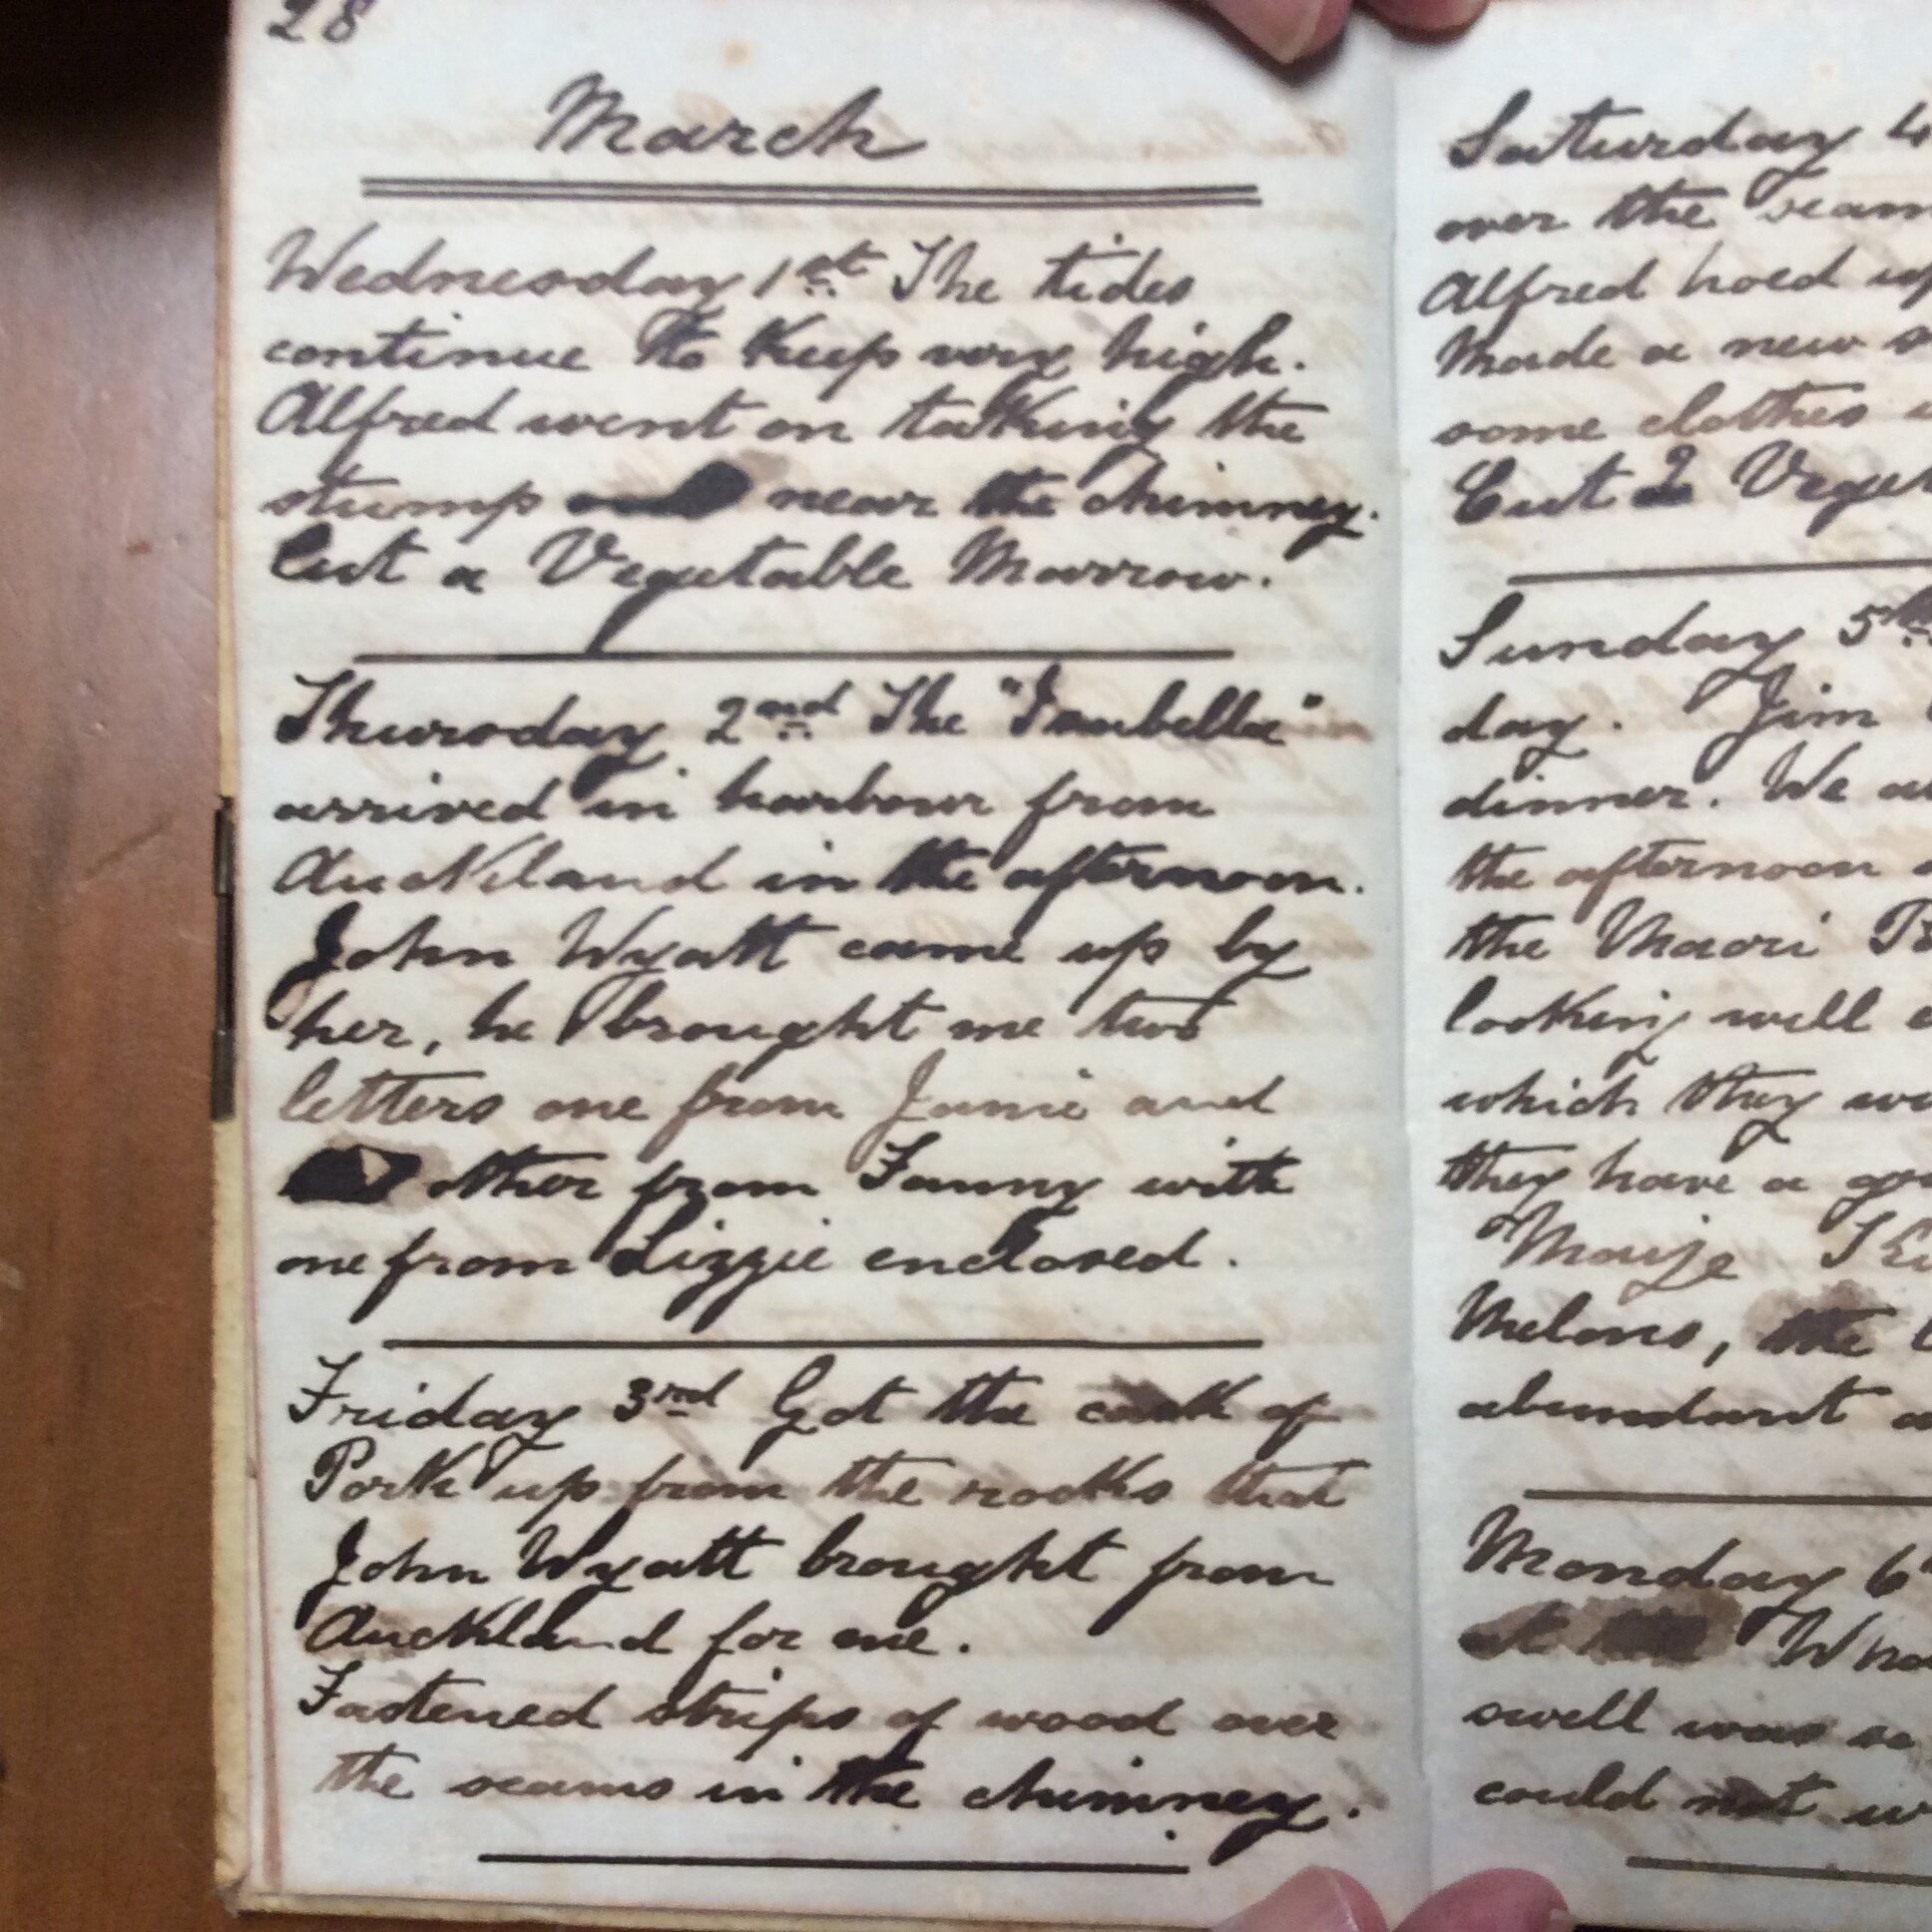 28
March
Wednesday 1st The tides
continue to keep very high.
Alfred went on taking the
stump near the chimney.
Cut a Vegetable Marrow.
Thursday 2nd The "Isabella"
arrived in harbour from
Auckland in the afternoon.
John Wyatt came up by
her, he brought me two
letters one from Janie and
other from Fanny with
one from Lizzie enclosed.
Friday 3rd Got the cask of
Pork up from the rocks that
John Wyatt brought from
Auckland for me.
Fastened strips of wood over
the seams in the chimney.
Saturday 4
over the seam
Alfred hoed up
Made a new
some clothes
Cut 2 Veget
Sunday 5th
day. Jim
dinner. We
the afternoon
the Maori
looking well
which they
they have a
Maize
Melons, the
abundant
Monday 6
at the
swell was so
could not